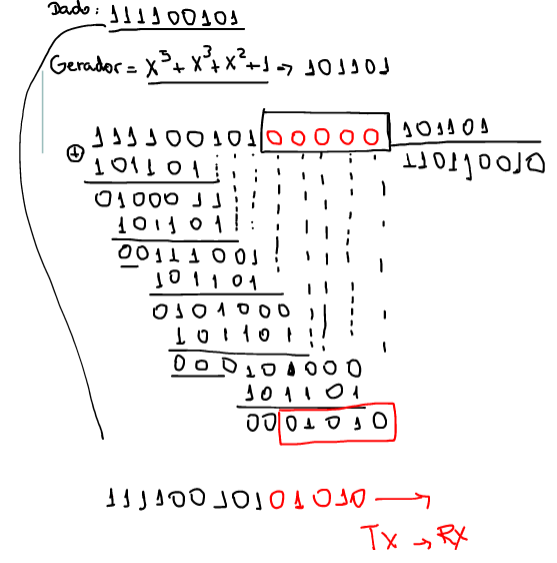 Dado: 111100101
Gerador = x⁵ + x³ + x² + 1 → 101101
⊕ 111100101 00000 101101
101101 110110010
0100011
101101
00111001
101101
0101000
101101
000101000
101101
00001010
11110010101010 →
Tx → Rx